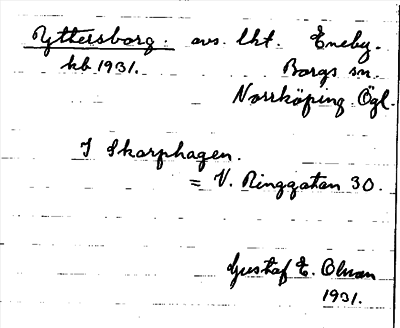 Ryttersborg. avs. lht. Eneby.
kb 1931. Borgs sn.
Norrköping Ögl.
I Skarphagen.
= V. Ringgatan 30.
Gustaf E. Olman
1931.